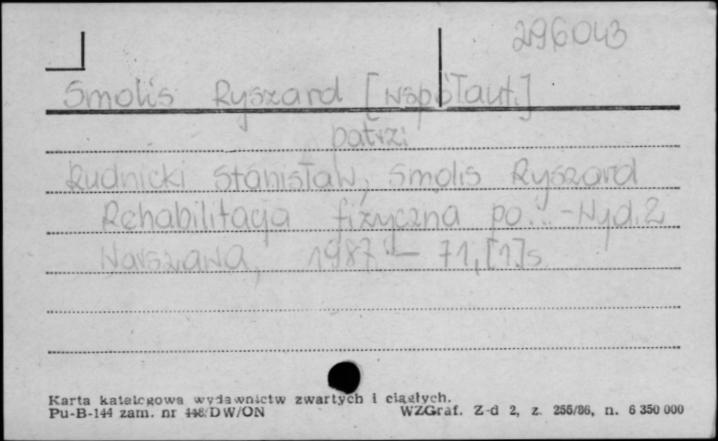 296043
Smolis Ryszard [współaut.]
patrz:
Rudnicki Stanisław, Smolis Ryszard
Rehabilitacja fizyczna po... - Wyd. 2
Warszawa, 1987. - 71, [1] s.
Karta katalogowa wydawnictw zwartych i ciągłych.
Pu-B-144 zam. nr 448/DW/ON WZGraf. Z-d 2, z. 255/86, n. 6 350 000